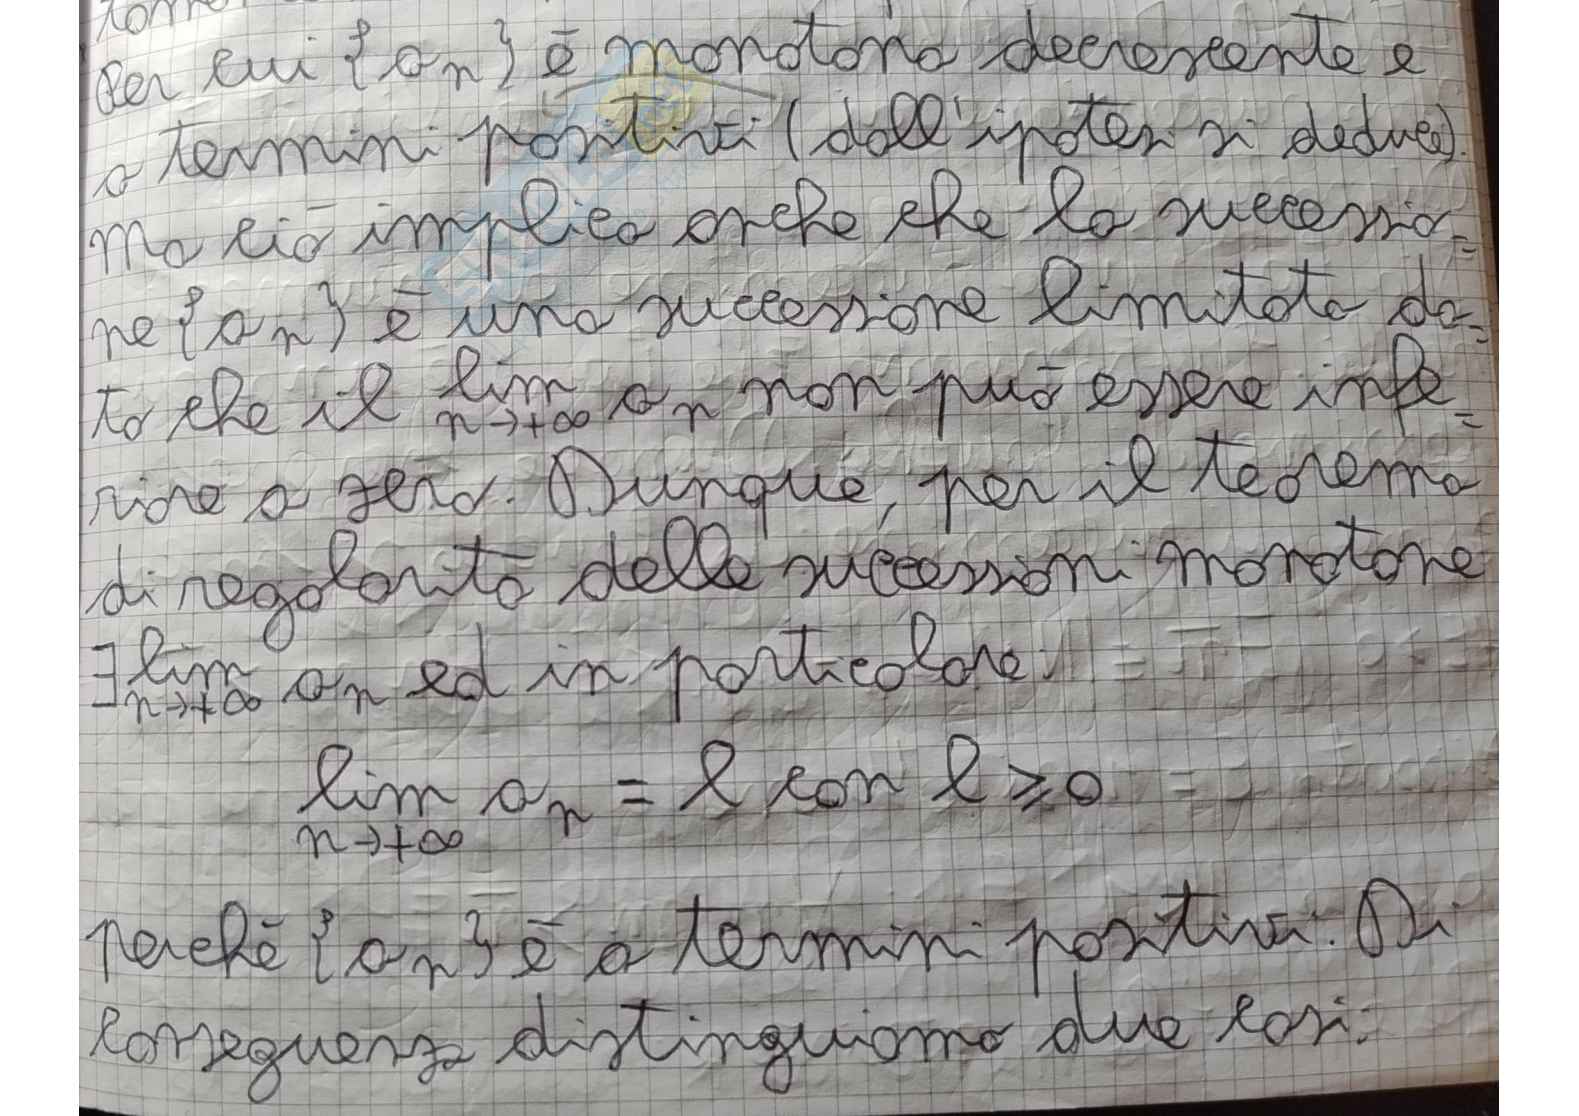 per cui {aₙ} è monotona decrescente e
a termini positivi (dall'ipotesi si deduce).
Ma ciò implica anche che la successio=
ne {aₙ} è una successione limitata da=
to che il lim n→+∞ aₙ non può essere infe=
riore a zero. Dunque, per il teorema
di regolarità delle successioni monotone
∃ lim n→+∞ aₙ ed in particolare
lim n→+∞ aₙ = l con l ⩾ 0
perché {aₙ} è a termini positivi. Di
conseguenza distinguiamo due casi: